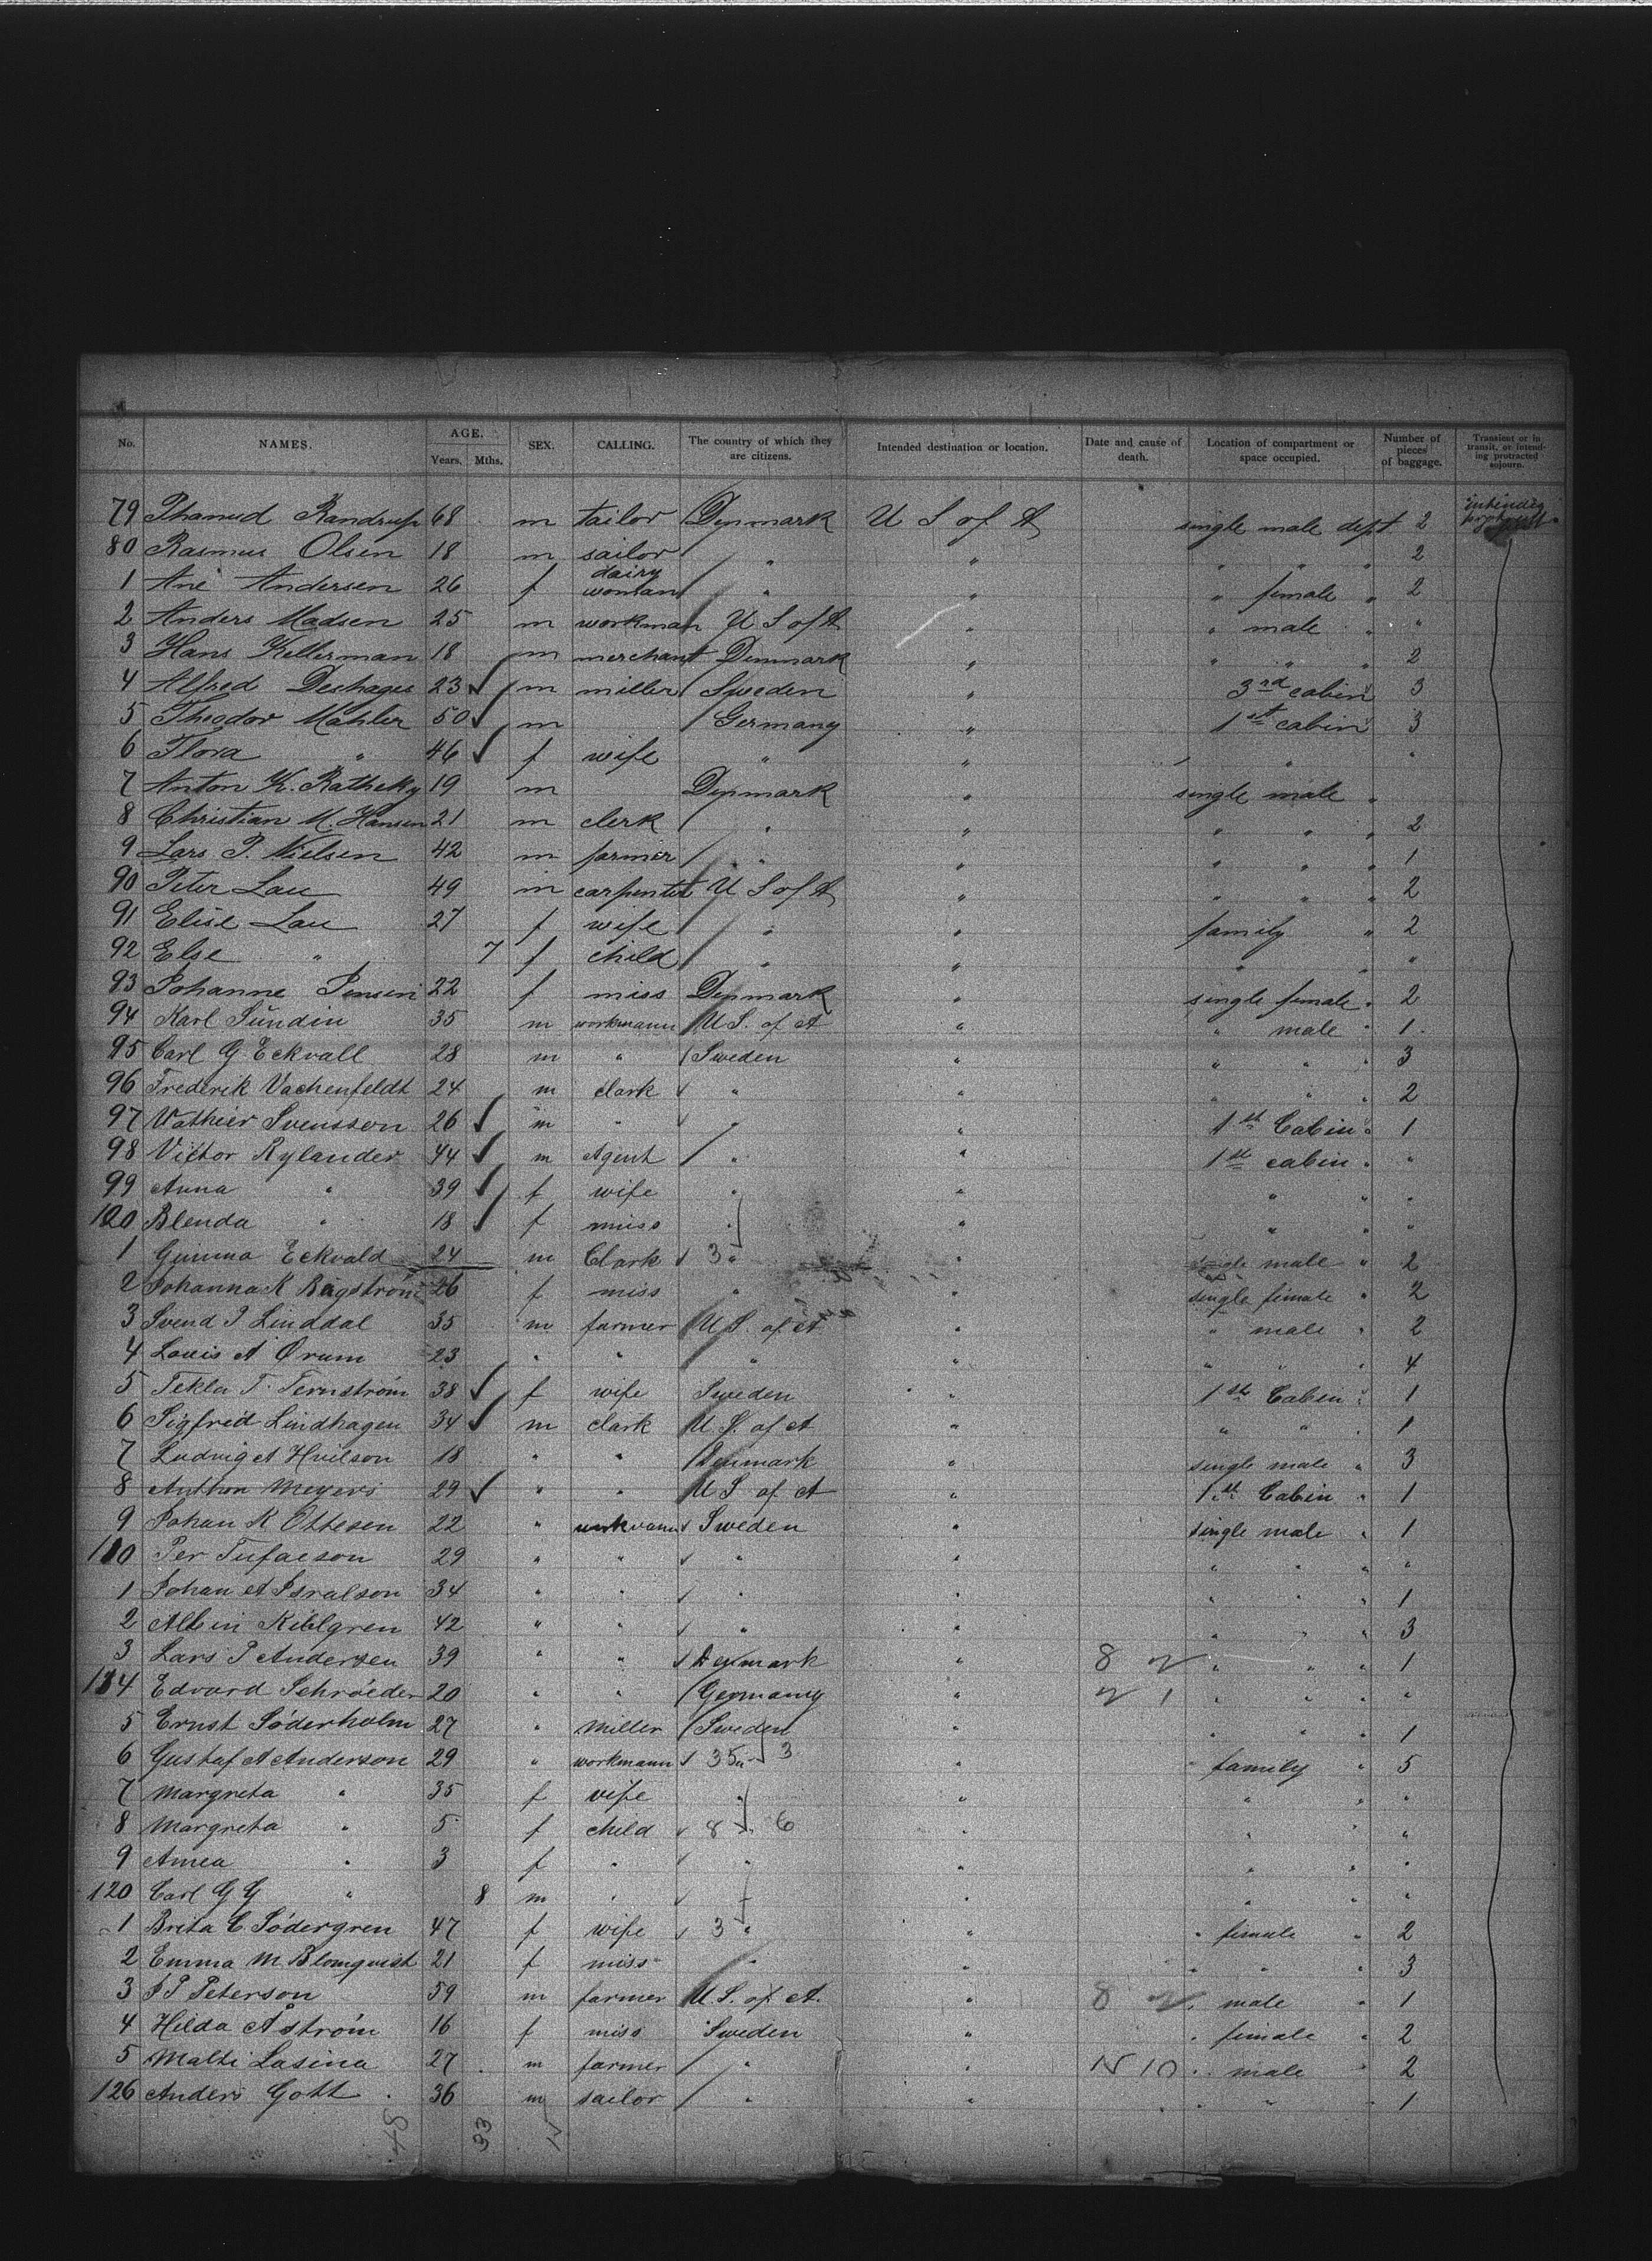 No. NAMES. AGE. Years. Mths. SEX. CALLING. The country of which they are citizens. Intended destination or location. Date and cause of death. Location of compartment or space occupied. Number of pieces of baggage. Transient or in transit, or intending protracted sojourn.
79 Randrup 68 m tailor Denmark U S of A single male dept. 2
80 Rasmus Olsen 18 m sailor " " " " " 2
1 Ane Andersen 26 f dairy woman " " " female " 2
2 Anders Madsen 25 m workman U S of A " " male " "
3 Hans Kellerman 18 m merchant Denmark " " " " 2
4 Alfred Deshages 23 m miller Sweden " 3rd cabin 3
5 Theodor Mahler 50 m Germany " 1st cabin 3
6 Flora " 46 f wife " " " "
7 Anton K. Ratheky 19 m Denmark " single male "
8 Christian M. Hansen 21 m clerk " " " " " 2
9 Lars P. Nielsen 42 m farmer " " " " " 1
90 Peter Lau 49 m carpenter U S of A " " " " 2
91 Elise Lau 27 f wife " " family " 2
92 Else " 7 f child " " " " "
93 Johanne Jensen 22 f miss Denmark " single female " 2
94 Karl Sundin 35 m workmann U S. of A " " male " 1
95 Carl G Eckvall 28 m " Sweden " " " " 3
96 Frederik Vachenfeldt 24 m clark " " " " " 2
97 Wathier Svensson 26 m " " " 1st Cabin " 1
98 Victor Rylander 44 m Agent " " 1st cabin " "
99 Anna " 39 f wife " " " " "
100 Blenda " 18 f miss " " " "
1 Eckvald 24 m Clark 3 " " single male " 2
2 Johanna K Bagström 26 f miss " " single female " 2
3 Svend J Linddal 35 m farmer U S. of A " " male " 2
4 Louis A Ørum 23 " " " " " " " 4
5 Tekla T. Ternström 38 f wife Sweden " 1st Cabin " 1
6 Sigfred Lindhagen 34 m clark U S. of A " " " 1
7 Ludvig A 18 " " Denmark " single male " 3
8 Anthon Meyers 29 " " U S of A " 1st Cabin " 1
9 Johan K Ottesen 22 " Sweden " single male " 1
110 Per 29 " " " " " " " "
1 Johan A 34 " " " " " " " 1
2 Albin 42 " " " " " " " 3
3 Lars P Andersen 39 " " Denmark " 8 " " " 1
114 Edvard Schröeder 20 " " Germany " 1 " " " "
5 Ernst Söderholm 27 " Miller Sweden " " " " 1
6 Gustaf A Anderson 29 " workmann 35 " 3 " family " 5
7 Margreta " 35 f wife " " " " "
8 Margreta " 5 f child 8 " 6 " " " "
9 " 3 f " " " " " "
120 Carl G G " 8 m " " " " "
1 Brita C Södergren 47 f wife 3 " " " female " 2
2 Emma M. Blomquist 21 f miss " " " " " 3
3 J P Peterson 59 m farmer U S. of A. " 8 " male " 1
4 Hilda Åström 16 f miss Sweden " " female " 2
5 Matti Lasina 27 m farmer " " N 10 " male " 2
126 Anders Gott 36 m sailor " " " " " 1
93